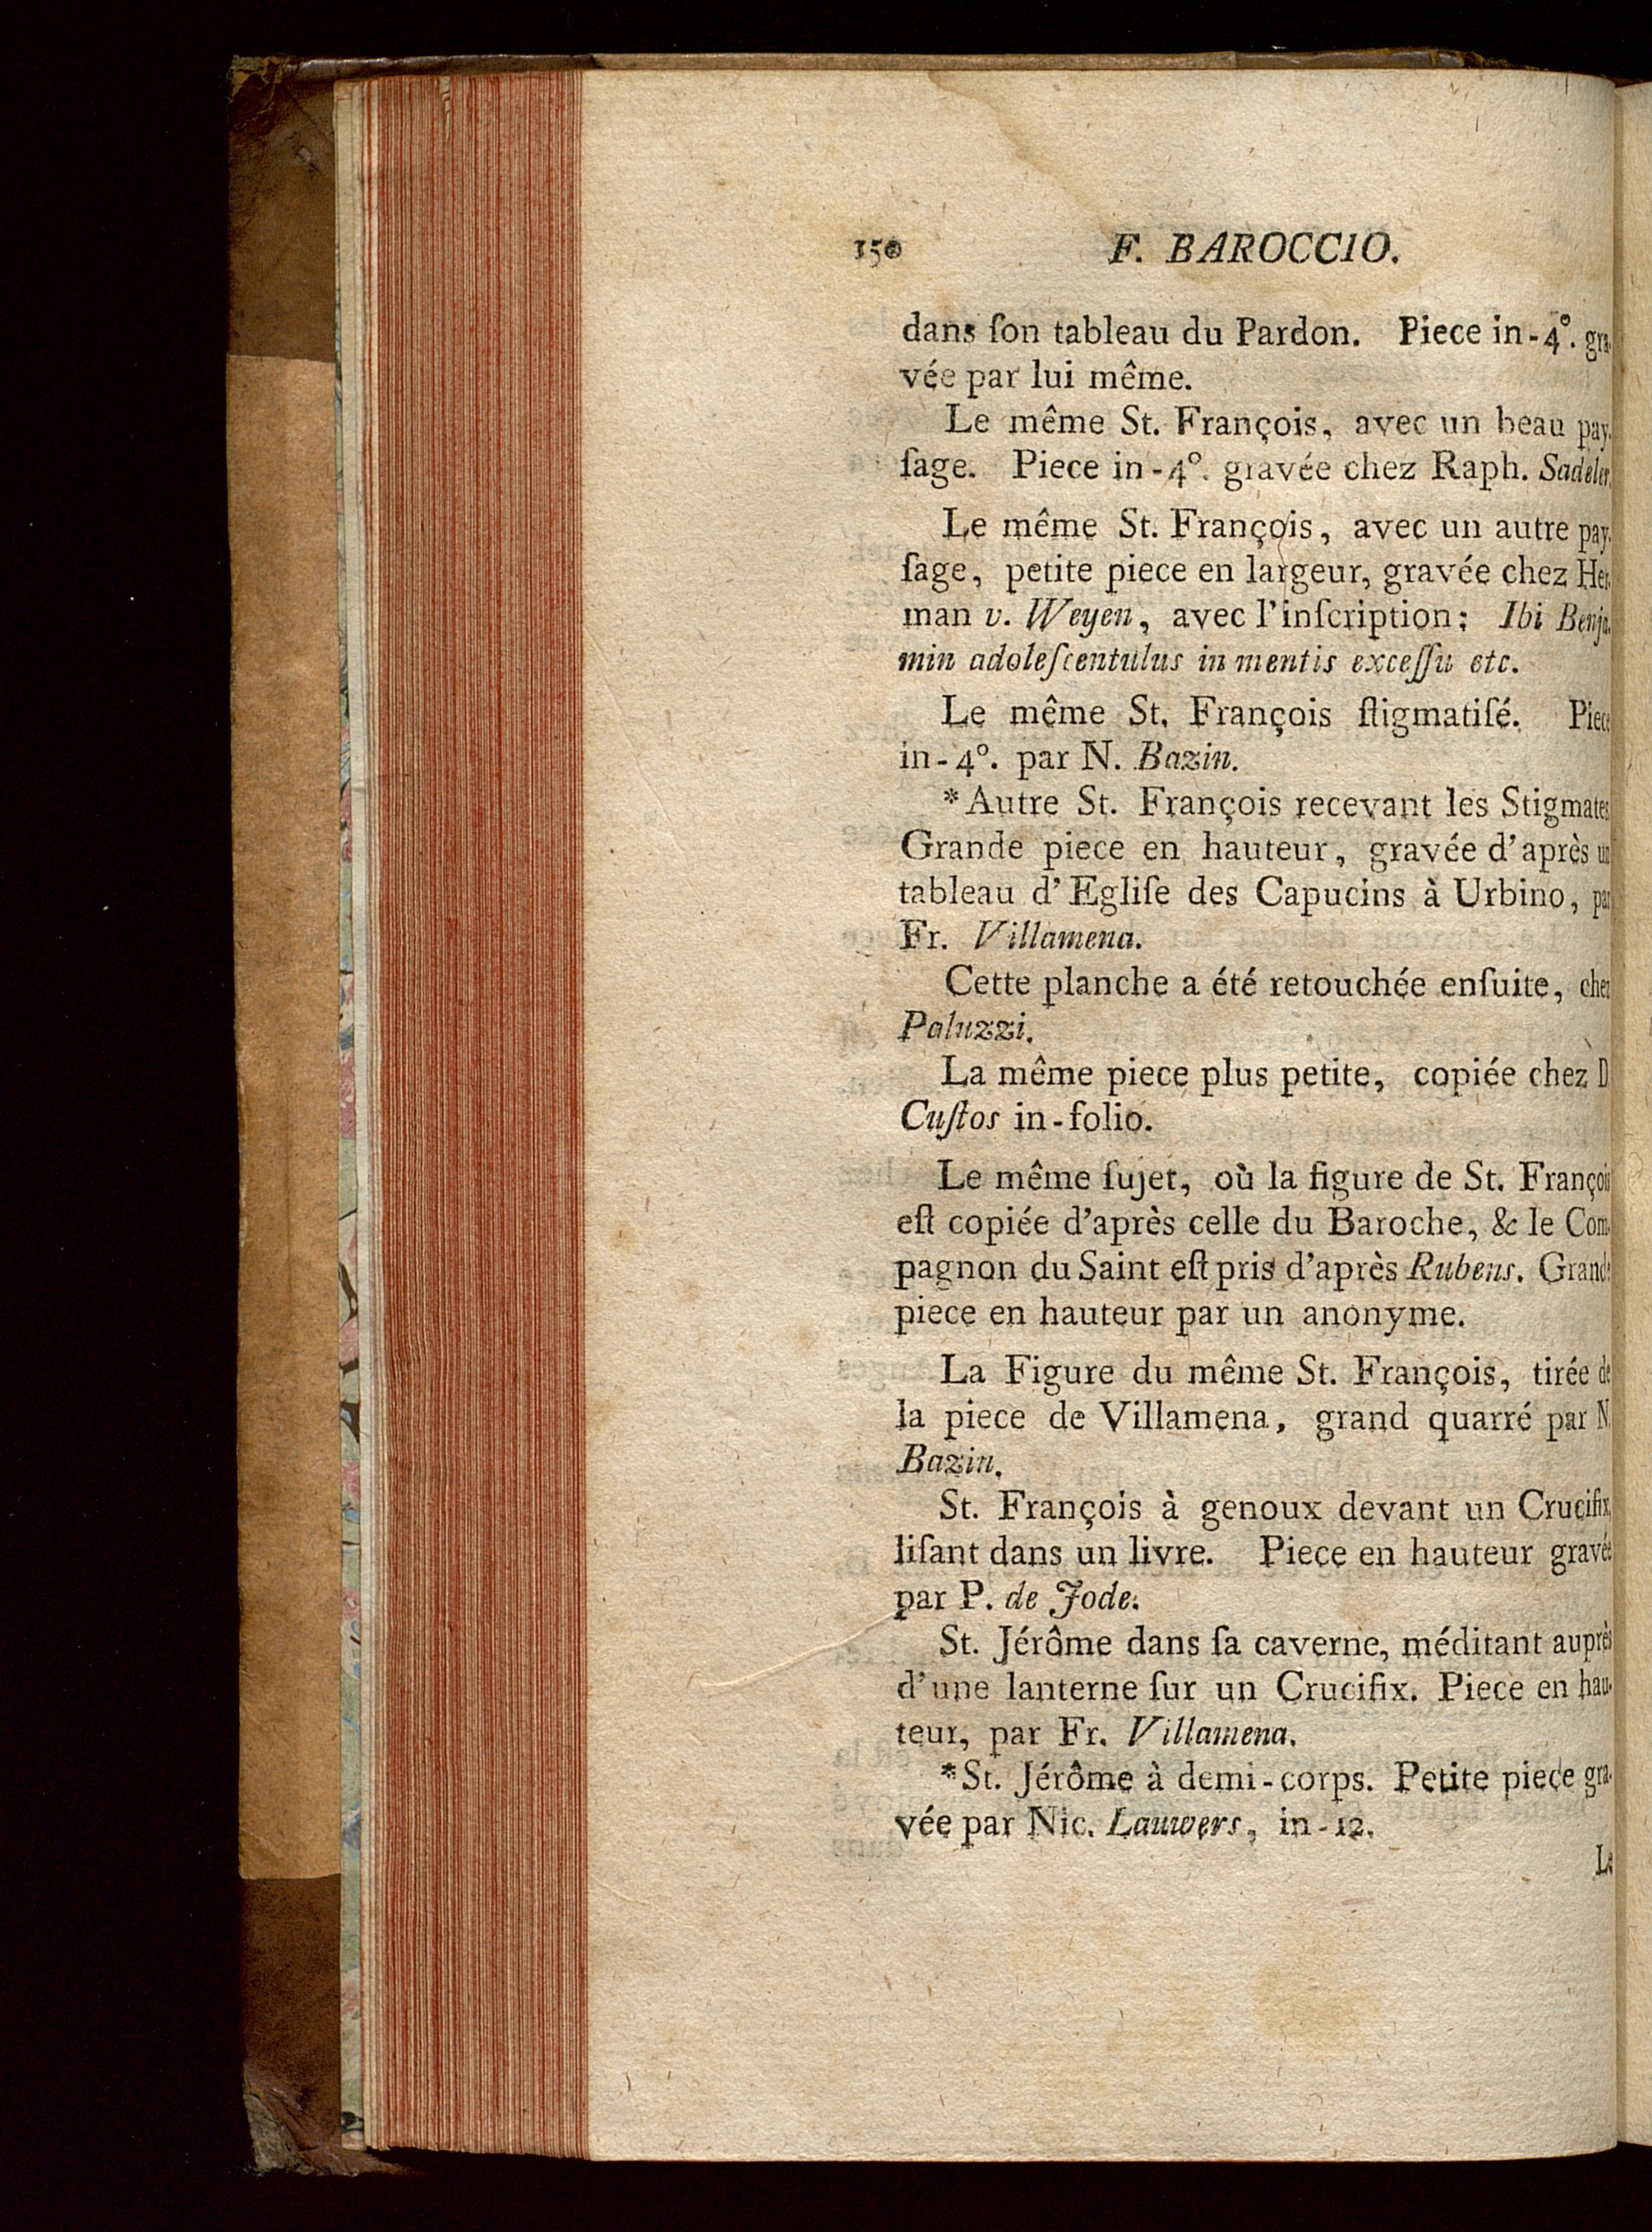 150 F. BAROCCIO.
dans ſon tableau du Pardon. Piece in-4°. gra-
vée par lui même.
Le même St. François, avec un beau pay-
ſage. Piece in-4°. gravée chez Raph. Sadeler.
Le même St. François, avec un autre pay-
ſage, petite piece en largeur, gravée chez Her-
man v. Weyen, avec l'inſcription: Ibi Benja-
min adoleſcentulus in mentis exceſſu etc.
Le même St. François ſtigmatiſé. Piece
in-4°. par N. Bazin.
*Autre St. François recevant les Stigmates
Grande piece en hauteur, gravée d'après un
tableau d'Egliſe des Capucins à Urbino, par
Fr. Villamena.
Cette planche a été retouchée enſuite, chez
Paluzzi.
La même piece plus petite, copiée chez D
Cuſtos in-folio.
Le même ſujet, où la figure de St. François
eſt copiée d'après celle du Baroche, & le Com-
pagnon du Saint eſt pris d'après Rubens. Grande
piece en hauteur par un anonyme.
La Figure du même St. François, tirée de
la piece de Villamena, grand quarré par N
Bazin.
St. François à genoux devant un Crucifix,
liſant dans un livre. Piece en hauteur gravée
par P. de Jode.
St. Jérôme dans ſa caverne, méditant auprès
d'une lanterne ſur un Crucifix. Piece en hau-
teur, par Fr. Villamena.
*St. Jérôme à demi-corps. Petite piece gra-
vée par Nic. Lauwers, in-12.
Le